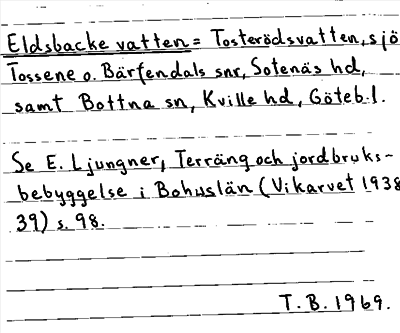 Eldsbacke vatten = Tosterödsvatten, sjö
Tossene o. Bärfendals snr, Sotenäs hd,
samt Bottna sn, Kville hd, Göteb. l.
Se E. Ljungner, Terräng och jordbruks-
bebyggelse i Bohuslän (Vikarvet 1938
39) s. 98.
T. B. 1969.